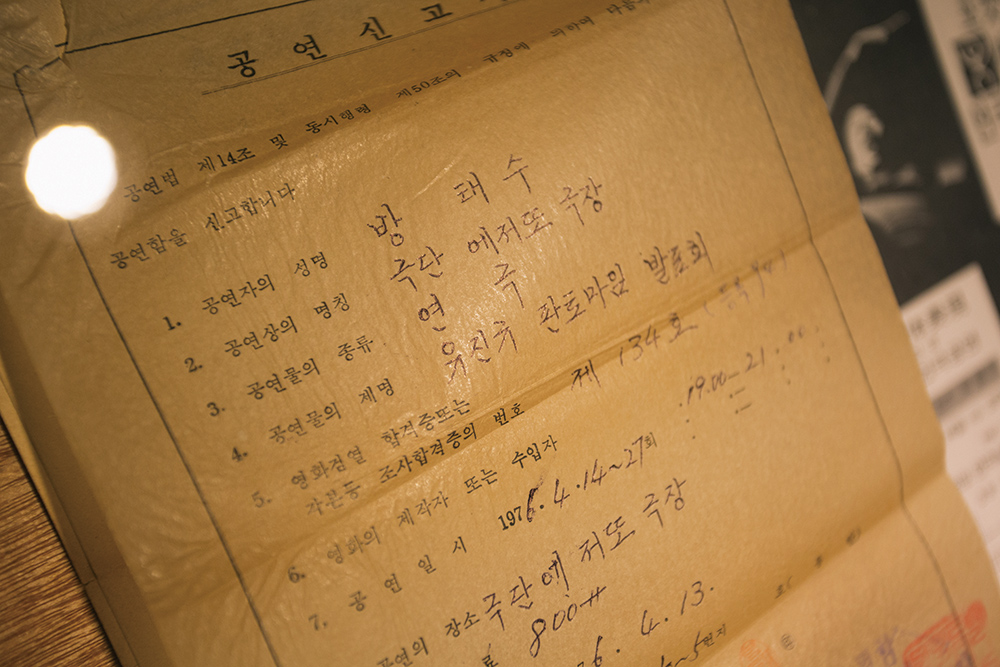 공 연 신 고
공연법 제14조 및 동시행령 제50조의 규정에 의하여 다음과
공연함을 신고합니다
1. 공연자의 성명 방 태 수
2. 공연상의 명칭 극단 에저또 극장
3. 공연물의 종류 연 극
4. 공연물의 제명 유진규 판토마임 발표회
5. 영화검열 합격증또는
각본등 조사합격증의 번호 제 134호
6. 영화의 제작자 또는 수입자
7. 공 연 일 시 1976.4.14~27 19.00-21.00
연의 장소 극단에저또 극장
료 800
76. 4. 13.